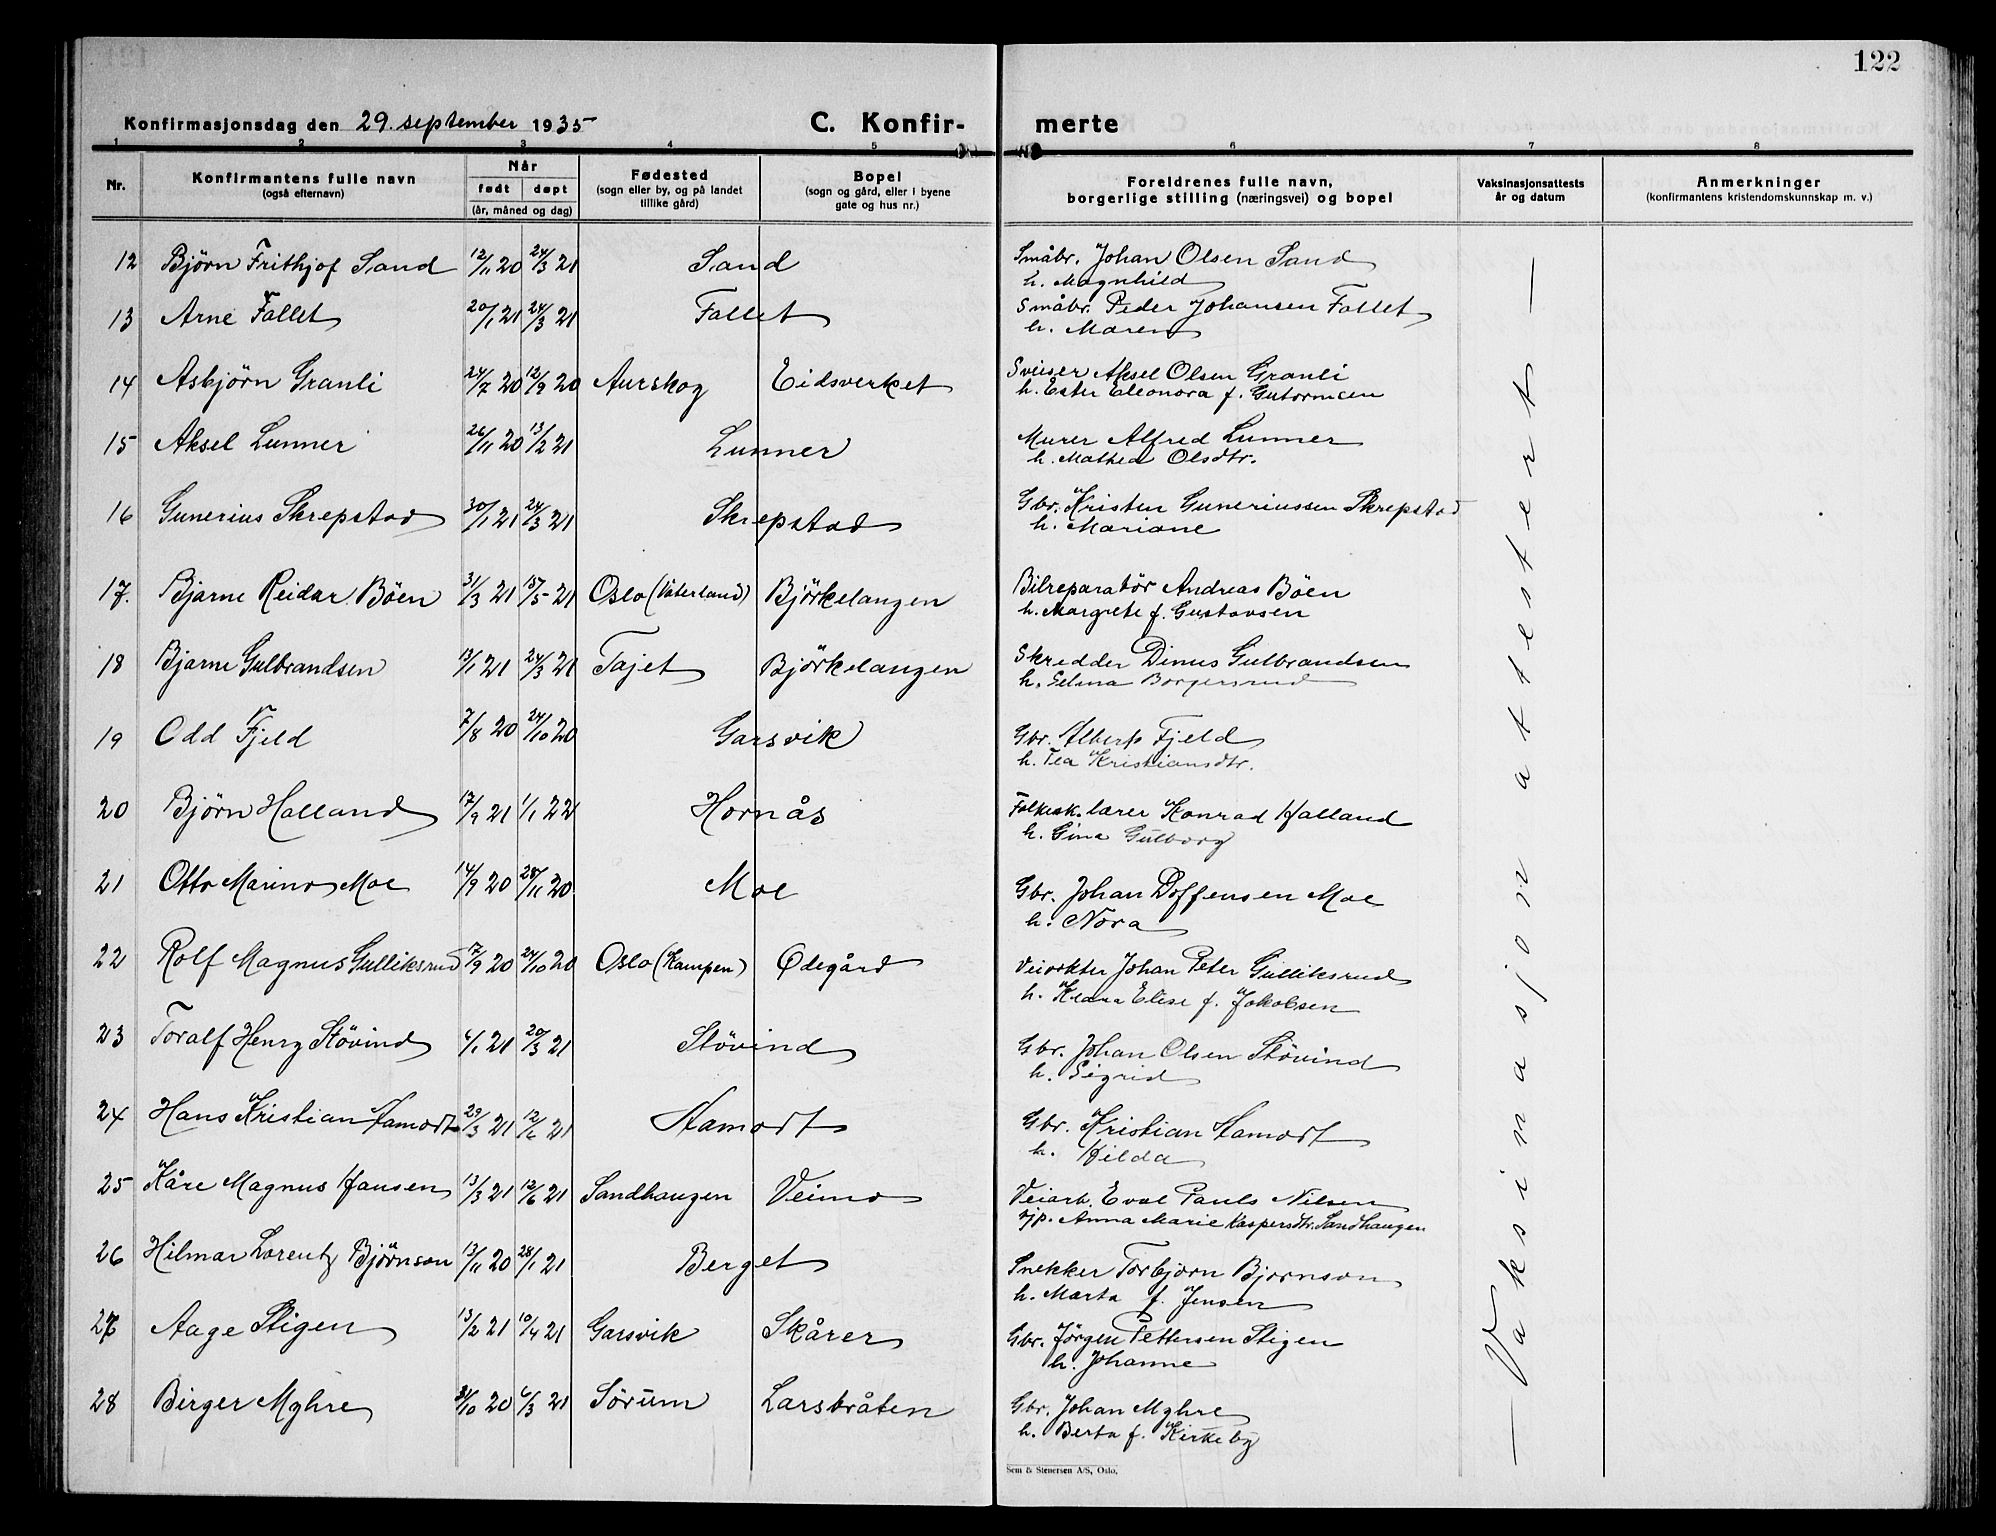 122
Konfirmasjonsdag den 29. september 1935 C. Konfir- merte
1 2 3 4 5 6 7 8
Nr. Konfirmantens fulle navn (også efternavn) Når født døpt (år, måned og dag) Fødested (sogn eller by, og på landet tillike gård) Bopel (sogn og gård, eller i byene gate og hus nr.) Foreldrenes fulle navn, borgerlige stilling (næringsvei) og bopel Vaksinasjonsattests år og datum Anmerkninger (konfirmantens kristendomskunnskap m. v.)
12 Bjørn Frithjof Sand 12/11 20 24/3 21 Sand Småbr. Johan Olsen Sand
h. Magnhild
13 Arne Fallet 20/1 21 24/3 21 Fallet Småbr. Peder Johansen Fallet
h. Maren
14 Asbjørn Granli 24/7 20 12/9 20 Aurskog Eidsverket Sveiser Aksel Olsen Granli
h. Ester Eleonora f. Gutormsen
15 Aksel Lunner 26/11 20 13/2 21 Lunner Murer Alfred Lunner
h. Mathea Olsdtr.
16 Gunerius Skrepstad 30/1 21 24/3 21 Skrepstad Gbr. Kristen Guneriussen Skrepstad
h. Mariane
17. Bjarne Reidar Böen 31/3 21 15/5 21 Oslo (Vaterland) Björkelangen Bilreparatör Andreas Böen
h. Margrete f. Gustavsen
18 Bjarne Gulbrandsen 13/1 21 24/3 21 Tajet Björkelangen Skredder Dinus Gulbrandsen
h. Selma Borgersrud
19 Odd Fjeld 7/8 20 24/10 20 Garsvik Gbr. Albert Fjeld
h. Tea Kristiansdtr.
20 Björn Halland 17/9 21 1/1 22 Hornås Folkesk. lærer Konrad Halland
h. Gina Gulborg
21 Otto Marino Moe 14/9 20 28/11 20 Moe Gbr. Johan Doffensen Moe
h. Nora
22 Rolf Magnus Gulliksrud 17/9 20 24/10 20 Oslo (Kampen) Ødegård Veivokter Johan Peter Gulliksrud
h. Klara Elise f. Jakobsen
23 Toralf Henry Stövind 6/1 21 20/3 21 Stövind Gbr. Johan Olsen Stövind
h. Sigrid
24 Hans Kristian Aamodt 29/3 21 12/6 21 Aamodt Gbr. Kristian Aamodt
h. Hilda
25 Kåre Magnus Hansen 13/3 21 12/6 21 Sandhaugen Veimo Veiarb. Eval Pauls Nilsen
Anna Marie Kaspersdtr. Sandhaugen
26 Hilmar Lorentz Björnson 13/11 20 28/1 21 Berget Snekker Torbjørn Bjørnson
h. Marta f. Jensen
27 Aage Stigen 13/2 21 10/4 21 Garsvik Skårer Gbr. Jörgen Pettersen Stigen
h. Johanne
28 Birger Myhre 31/10 20 6/3 21 Sörum Larsbråten Gbr. Johan Myhre
h. Berta f. Kirkeby
— Vaksinasjon attestert —
Sem & Stenersen A/S, Oslo.